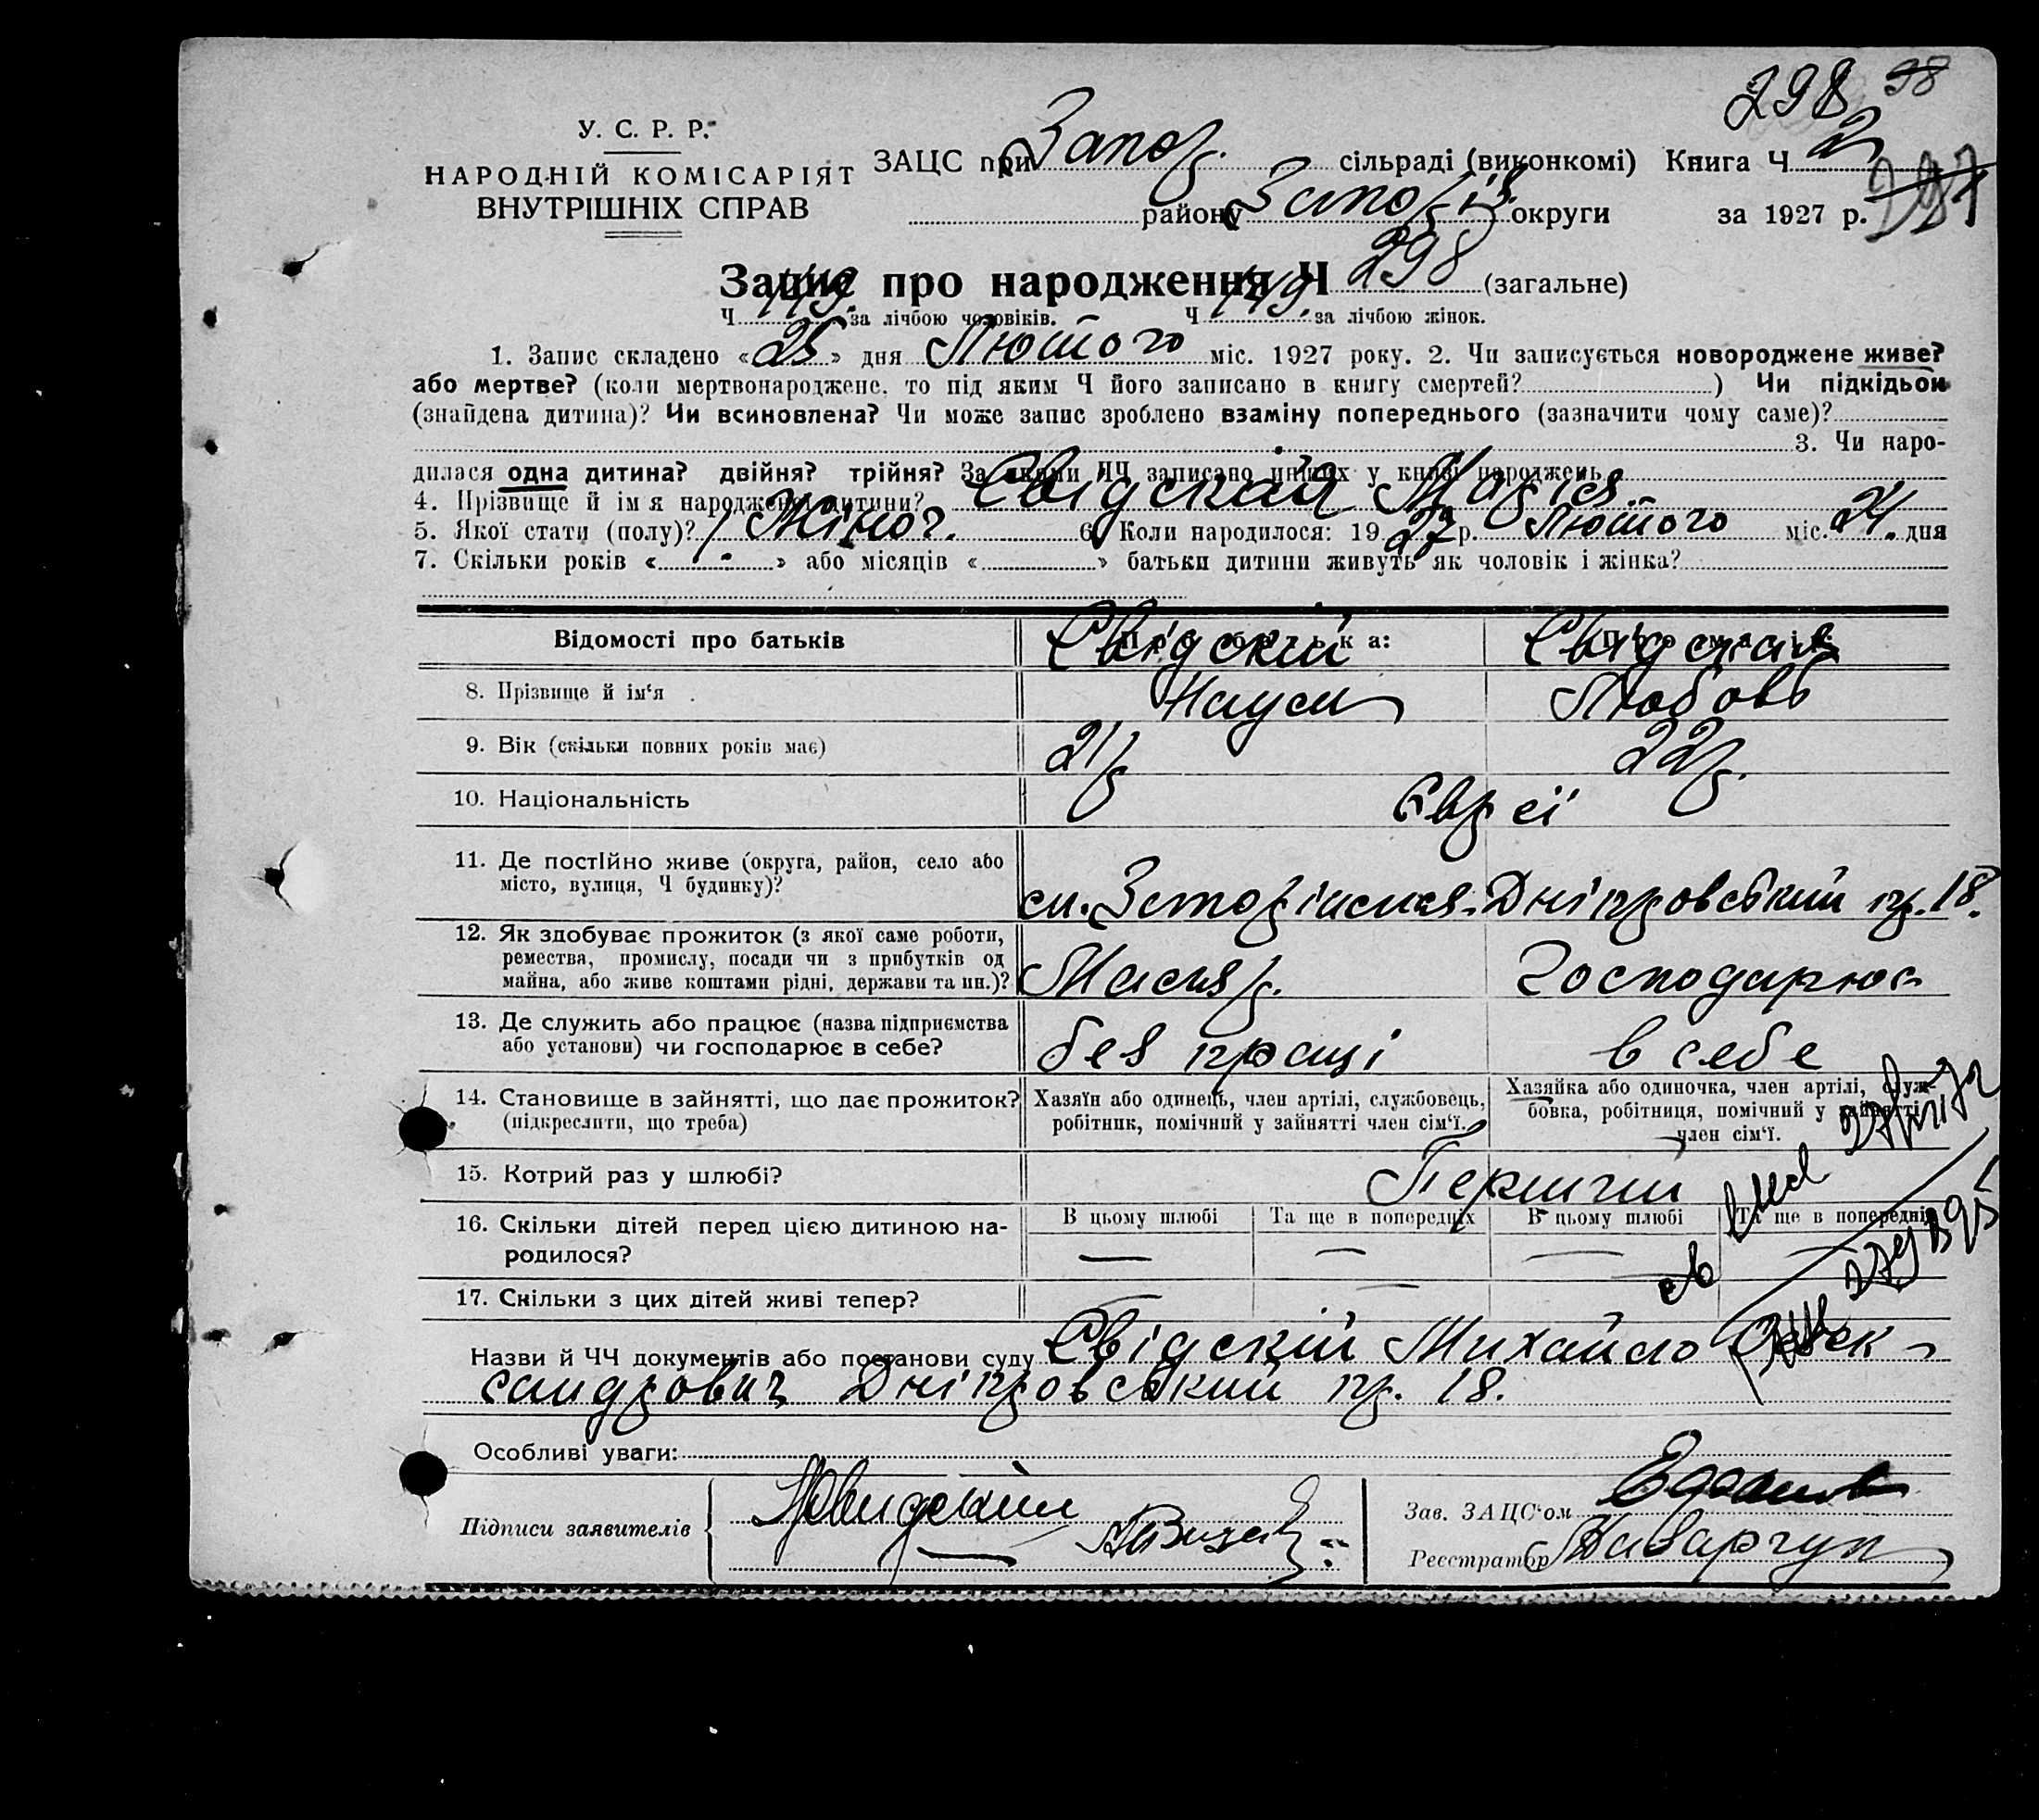 298 98
У. С. Р. Р.
НАРОДНІЙ КОМІСАРІЯТ
ВНУТРІШНІХ СПРАВ
ЗАЦС при Запор. сільраді (виконкомі) Книга Ч 2
району Запоріз. округи за 1927 р. 297
Запис про народження Ч 298 (загальне)
Ч 149. за лічбою чоловіків. Ч 149. за лічбою жінок.
1. Запис складено «25» дня Лютого міс. 1927 року. 2. Чи записується новороджене живе?
або мертве? (коли мертвонароджене, то під яким Ч його записано в книгу смертей? ) Чи підкідьок
(знайдена дитина)? Чи всиновлена? Чи може запис зроблено взаміну попереднього (зазначити чому саме)?
3. Чи наро-
дилася одна дитина? двійня? трійня? За якими ЧЧ записано инших у книзі народжень
4. Прізвище й ім я народженої дитини? Свідская Марія
5. Якої стати (полу)? Жіноч. 6. Коли народилося: 1927 р. Лютого міс. 24. дня
7. Скільки років « - » або місяців « » батьки дитини живуть як чоловік і жінка?
Відомості про батьків Про батька: Про матір:
Свідскій Свідская
8. Прізвище й ім'я Наум Любовь
9. Вік (скільки повних років має) 21 р. 22 р.
10. Національність Євреї
11. Де постійно живе (округа, район, село або
місто, вулиця, Ч будинку)? Дніпровський пр. 18.
12. Як здобуває прожиток (з якої саме роботи,
ремества, промислу, посади чи з прибутків од
майна, або живе коштами рідні, держави та ин.)? Маляр. Господарює
13. Де служить або працює (назва підприємства
або установи) чи господарює в себе? без праці в себе
14. Становище в зайнятті, що дає прожиток?
(підкреслити, що треба)
Хазяїн або одинець, член артілі, службовець,
робітник, помічний у зайнятті член сім'ї.
Хазяйка або одиночка, член артілі, служ-
бовка, робітниця, помічний у зайнятті
член сім'ї.
15. Котрий раз у шлюбі? Перший
16. Скільки дітей перед цією дитиною на-
родилося?
В цьому шлюбі Та ще в попередніх В цьому шлюбі Та ще в попередніх
— — — —
17. Скільки з цих дітей живі тепер?
Назви й ЧЧ документів або постанови суду Свідскій Михайло Олек-
сандрович Дніпровський пр. 18.
Особливі уваги:
Підписи заявителів
Зав. ЗАЦС'ом
Реєстратор